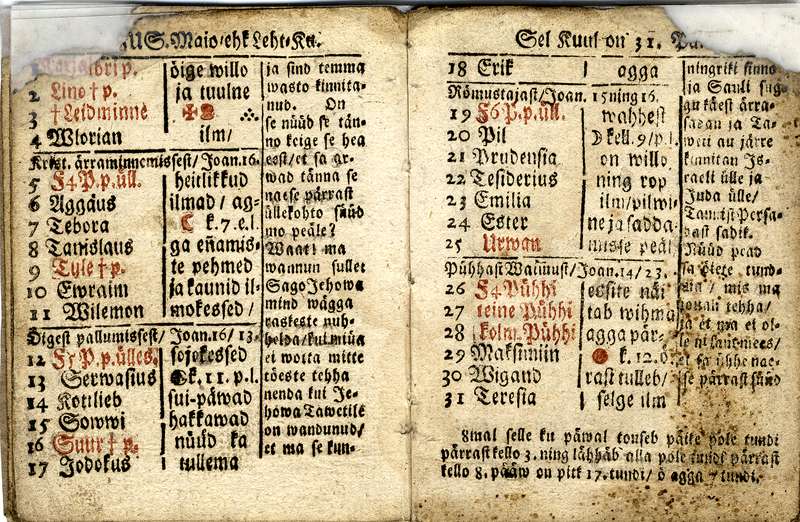 US. Maio/ehk Leht-Ku.
p.
2 Lino † p.
3 † Leidminne
4 Wlorian
Krist. ärraminnemissest/ Joan. 16.
5 F4 P. p. üll.
6 Aggäus
7 Tebora
8 Tanislaus
9 Tyle † p.
10 Ewraim
11 Wilemon
Öigest pallumissest/ Joan. 16/ 13.
12 F5 P. p. ülles.
13 Serwasius
14 Kottlieb
15 Sowwi
16 Suur † p.
17 Jodokus
öige willo
ja tuulne
ilm/
heitlikkud
ilmad/ ag-
☾ k. 7. e. l.
ga eñamis-
te pehmed
ja kaunid il-
mokessed/
sojokessed
k. 11. p. l.
sui-päwad
hakkawad
nüüd ka
tullema
ja sind temma
wasto kinnita-
nud. On
se nüüd se tän-
no keige se hea
eest/ et sa ar-
wad tänna se
naese pärrast
üllekohto süüd
mo peäle?
Waat! ma
wannun sullet
Sago Jehowa
mind wägga
raskeste nuh-
helda/ kui müa
ei wotta mitte
töeste tehha
nenda kui Je-
howa Tawetile
on wandunud/
et ma se kun-
Sel Kuul on 31.
18 Erik
Römustajast/ Joan. 15 ning 16.
19 F6 P. p. üll.
20 Pil
21 Prudensia
22 Tesiderius
23 Emilia
24 Ester
25 Urwan
Pühhast Waimust/ Joan. 14/ 23.
26 F4 Pühhi
27 teine Pühhi
28 kolm. Pühhi
29 Maksimiin
30 Wigand
31 Teresia
agga
wahhest
☽ kell. 9/ p. l.
on willo
ning rop
ilm/ pilwi-
ne ja sadda
misse peäl
eessite näi
tab wihma
agga pär-
k. 12. ö.
rast tulleb/
selge ilm
ningriki sinno
ja Sauli sug-
gu käest ärra-
sadan ja Ta-
weti au järre
kinnitan Is-
raeli ülle ja
Juda ülle/
Tamist Persa-
bast sadik.
Nüüd pead
sa öiete tund-
mis ma
tehha/
ja et ma ei ol-
le ni laut-mees/
et sa ühhe nae-
se pärrast süüd
8mal selle ku päwal touseb päike pole tundi
pärrast kello 3. ning lähhäb alla pole tundi pärrast
kello 8. pääw on pitk 17. tundi/ ö agga 7 tundi.